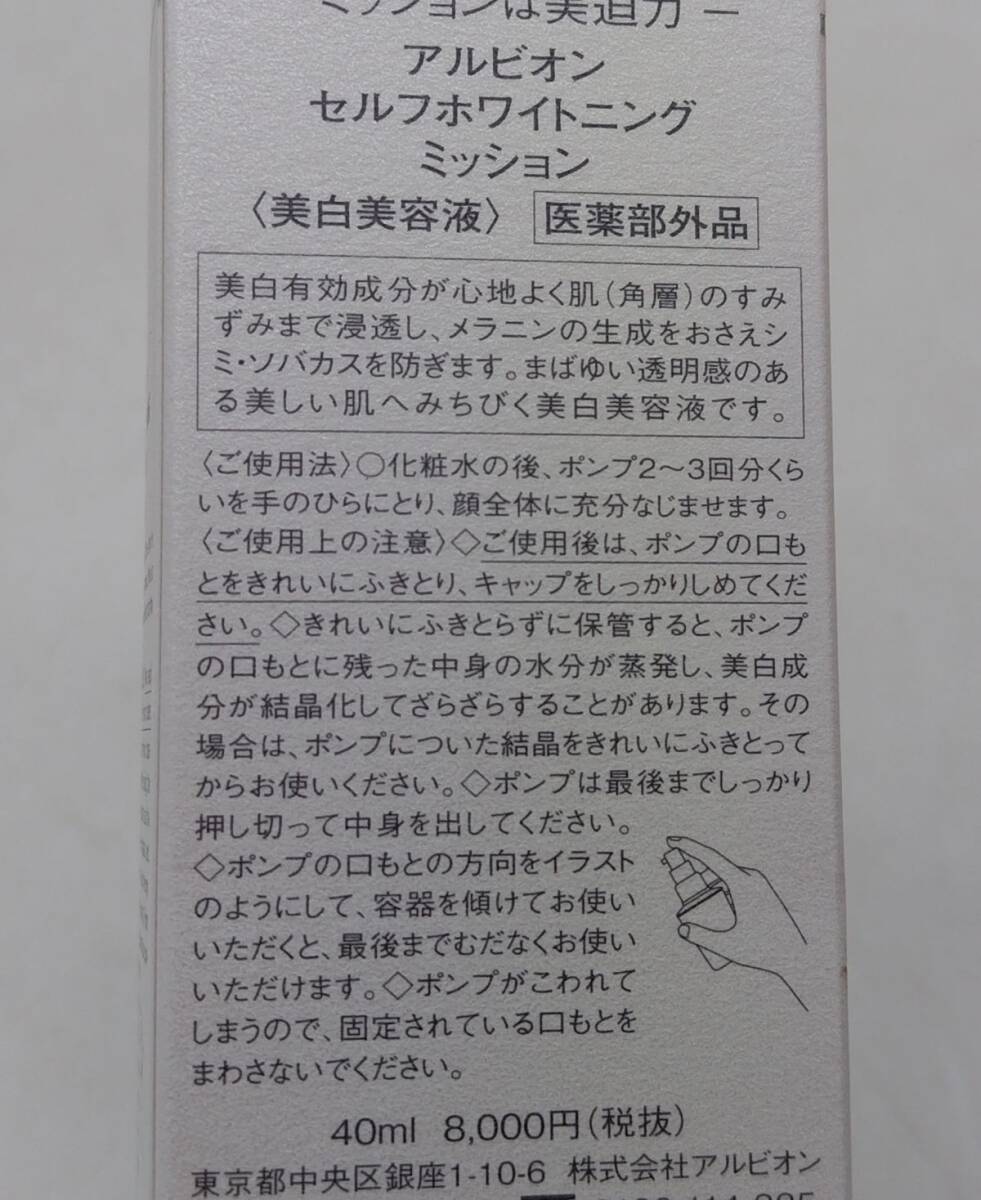 ミッションは美迫力 ―
アルビオン
セルフホワイトニング
ミッション
〈美白美容液〉 医薬部外品
美白有効成分が心地よく肌(角層)のすみ
ずみまで浸透し、メラニンの生成をおさえシ
ミ・ソバカスを防ぎます。まばゆい透明感のあ
る美しい肌へみちびく美白美容液です。
〈ご使用法〉○化粧水の後、ポンプ2〜3回分くら
いを手のひらにとり、顔全体に充分なじませます。
〈ご使用上の注意〉◇ご使用後は、ポンプの口も
とをきれいにふきとり、キャップをしっかりしめてくだ
さい。◇きれいにふきとらずに保管すると、ポンプ
の口もとに残った中身の水分が蒸発し、美白成
分が結晶化してざらざらすることがあります。その
場合は、ポンプについた結晶をきれいにふきとって
からお使いください。◇ポンプは最後までしっかり
押し切って中身を出してください。
◇ポンプの口もとの方向をイラスト
のようにして、容器を傾けてお使い
いただくと、最後までむだなくお使い
いただけます。◇ポンプがこわれて
しまうので、固定されている口もとを
まわさないでください。
40ml 8,000円(税抜)
東京都中央区銀座1-10-6 株式会社アルビオン